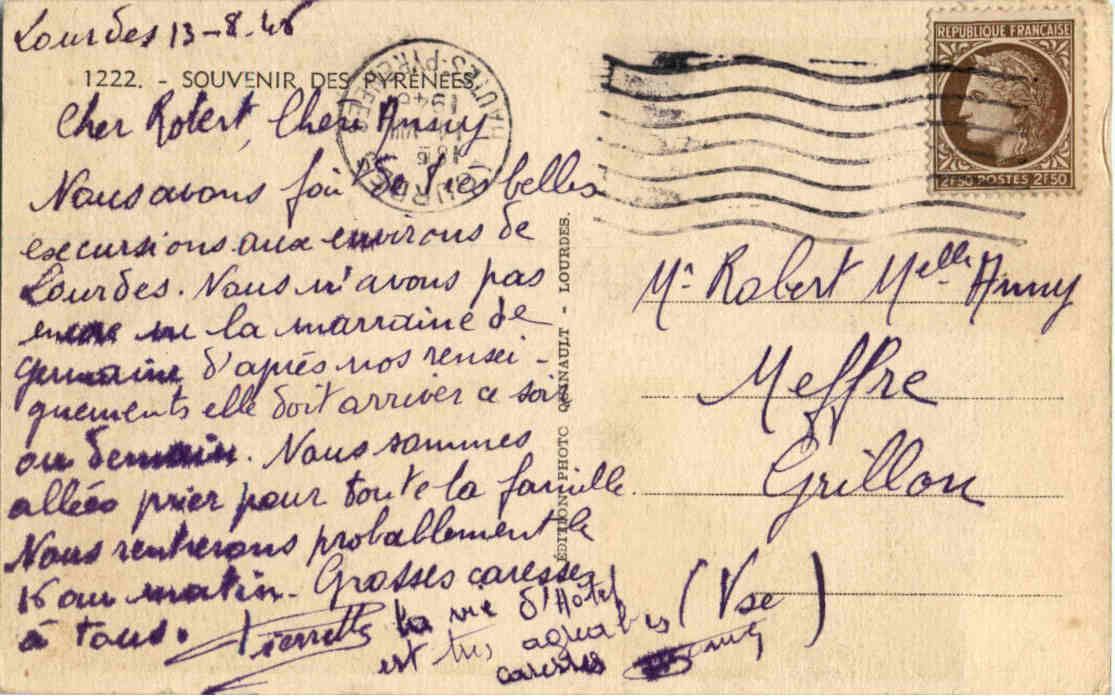 Lourdes 13-8.46
1222. - SOUVENIR DES PYRÉNÉES
Cher Robert, Cheri Anny
Nous avons fai de très belles
excursions aux environs de
Lourdes. Nous n'avons pas
encore vu la marraine de
germaine d'après nos rensei-
gnements elle doit arriver ce soir
ou demain. Nous sommes
allées prier pour toute la famille.
Nous rentrerons probablement le
16 au matin. Grosses caresses
à tous. Pierrette
la vie d'Hôtel
est très
caresses
ÉDITION PHOTO - LOURDES.
RÉPUBLIQUE FRANÇAISE
2F50 POSTES 2F50
LOURDES
HAUTES-PYRÉNÉES
Mr Robert Melle Anny
Meffre
Grillon
(Vse)